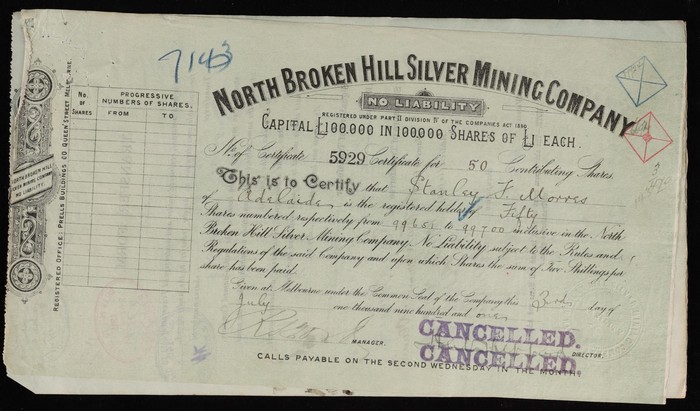 7143
NORTH BROKEN HILL SILVER MINING COMPANY
NO LIABILITY.
REGISTERED UNDER PART II DIVISION IV OF THE COMPANIES ACT 1890.
CAPITAL £100.000 IN 100.000 SHARES OF £1 EACH.
No. of Certificate 5929 Certificate for 50 Contributing Shares.
This is to Certify that Stanley F. Morres
of Adelaide is the registered holder of Fifty
Shares numbered respectively from 99651 to 99700 inclusive in the North
Broken Hill Silver Mining Company No Liability subject to the Rules and
Regulations of the said Company and upon which Shares the sum of Two Shillings per
share has been paid.
Given at Melbourne under the Common Seal of the Company this 3rd day of
July one thousand nine hundred and one
MANAGER.
DIRECTOR.
CANCELLED.
CANCELLED.
CALLS PAYABLE ON THE SECOND WEDNESDAY IN THE MONTH.
No. OF SHARES
PROGRESSIVE NUMBERS OF SHARES.
FROM TO
NORTH BROKEN HILL
SILVER MINING COMPANY
NO LIABILITY.
REGISTERED OFFICE: PRELLS BUILDINGS 60 QUEEN STREET